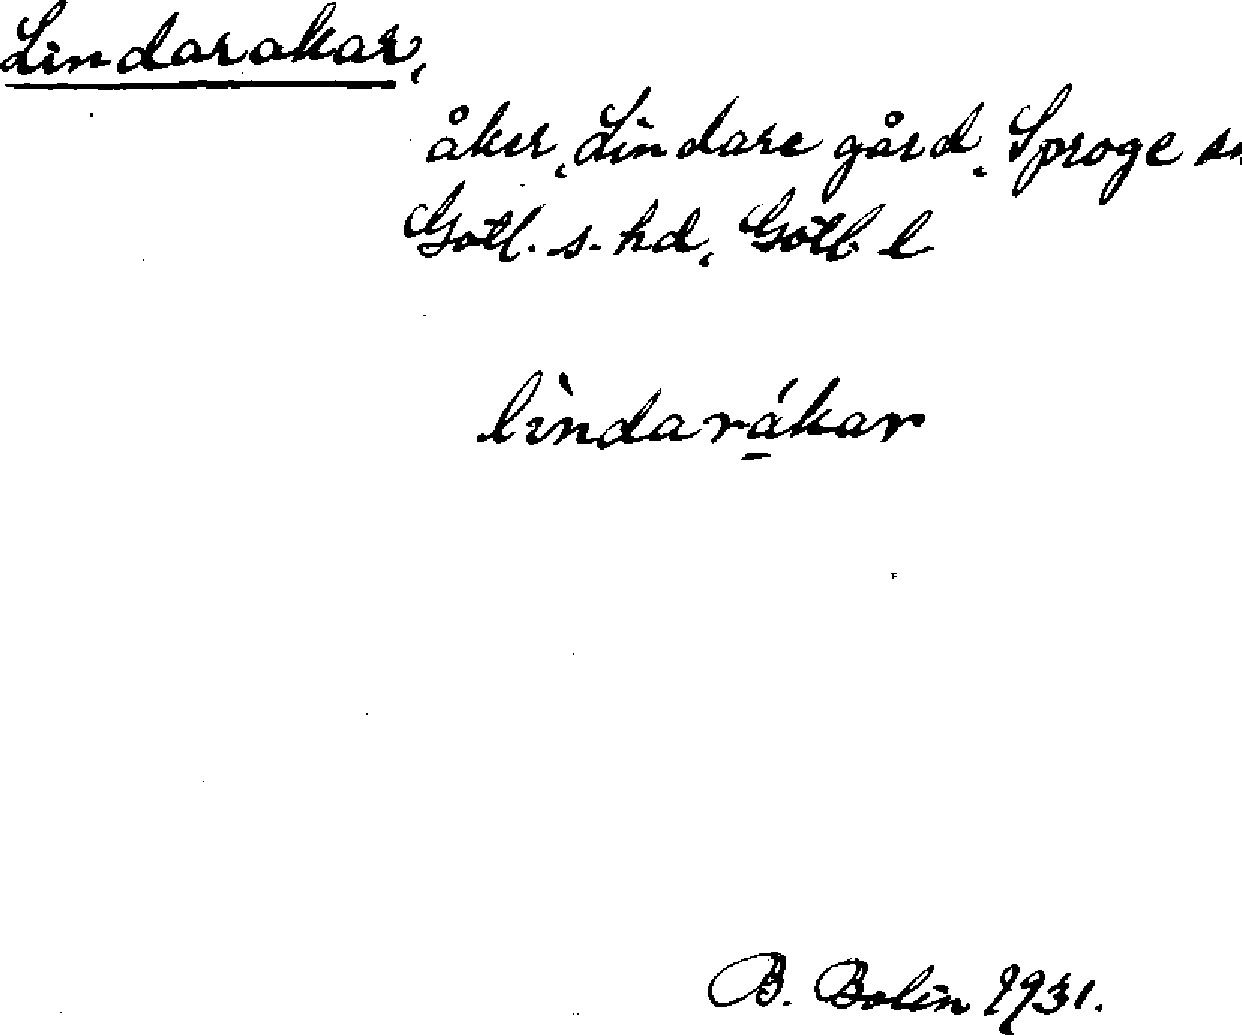 Lindarakar,
åker, Lindare gård, Sproge sn
Gotl. s. hd, Gotl. l
lìndarákar
B. Bolin 1931.